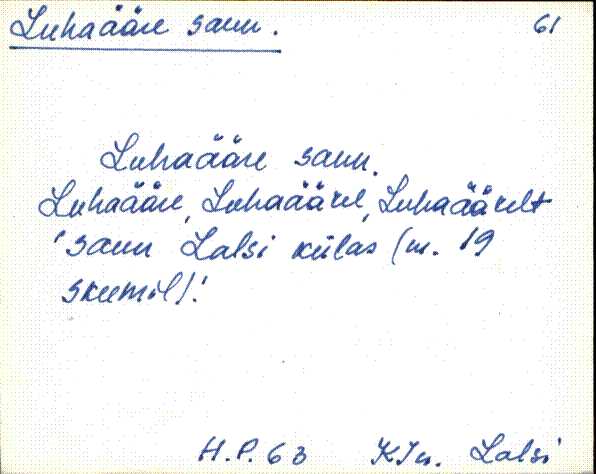 Luhaääre saun. 61
Luhaääre saun.
Luhaääre, Luhaäärel, Luhaäärelt
'saun Lalsi külas (m. 19
skeemil)'.
H.P. 63 KJn. Lalsi